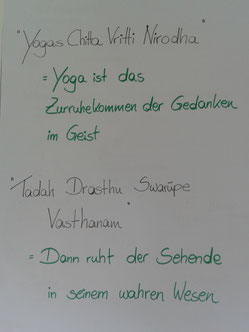 "Yogas Chitta Vritti Nirodha"
= Yoga ist das
Zurruhekommen der Gedanken
im Geist
"Tadah Drasthu Swarūpe
Vasthanam"
= Dann ruht der Sehende
in seinem wahren Wesen